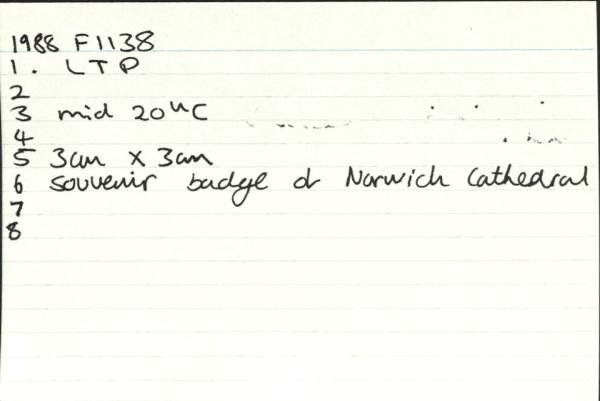 1988 F1138
1. LTP
2
3 mid 20th C
4
5 3cm x 3cm
6 souvenir badge of Norwich Cathedral
7
8